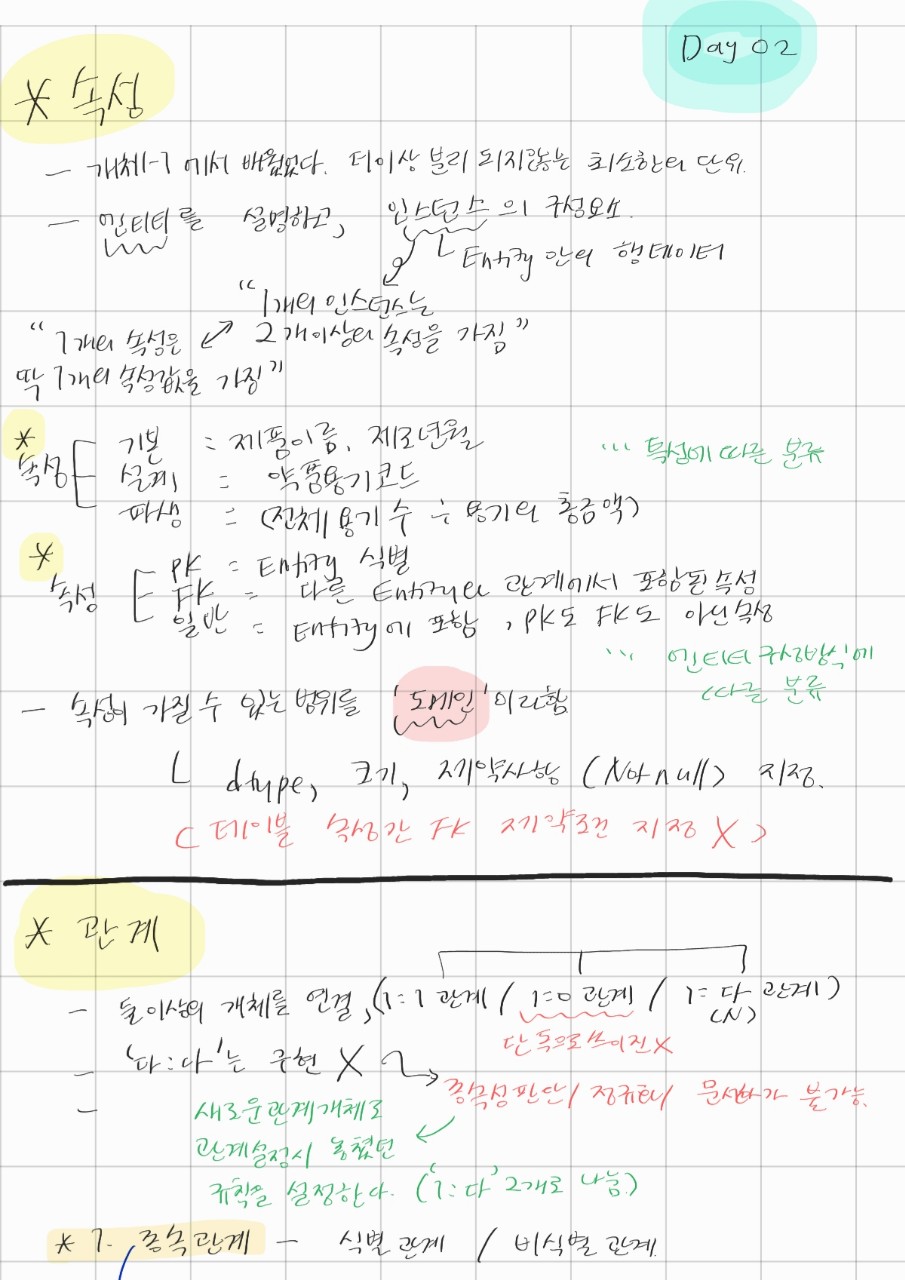 Day 02
* 속성
- 개체-1 에서 배웠었다. 더이상 분리 되지않는 최소한의 단위.
- 엔티티를 설명하고, 인스턴스의 구성요소.
Entity 안의 행데이터
"1개의 인스턴스는
2개이상의 속성을 가짐"
"1개의 속성은
딱 1개의 속성값을 가짐"
* 속성
기본 = 제품이름, 제조년월
설계 = 약품용기코드
파생 = (전체용기 수 ÷ 용기의 총금액)
... 특성에 따른 분류
* 속성
PK = Entity 식별
FK = 다른 Entity와 관계에서 포함된 속성
일반 = Entity에 포함, PK도 FK도 아닌속성
... 엔티티 구성방식에
따른 분류
- 속성이 가질 수 있는 범위를 '도메인'이라함
└ dtype, 크기, 제약사항 (Not null) 지정.
(테이블 속성간 FK 제약조건 지정 X)
* 관계
- 둘이상의 개체를 연결, (1:1 관계 / 1:0 관계 / 1:다 관계)
(N)
단독으로쓰이진X
- '다:다'는 구현 X
종속성판단/정규화/ 문서화가 불가능.
-
새로운관계개체로
관계설정시 놓쳤던
규칙을 설정한다. ('1:다' 2개로 나눔.)
* 1. 종속관계 - 식별관계 / 비식별관계